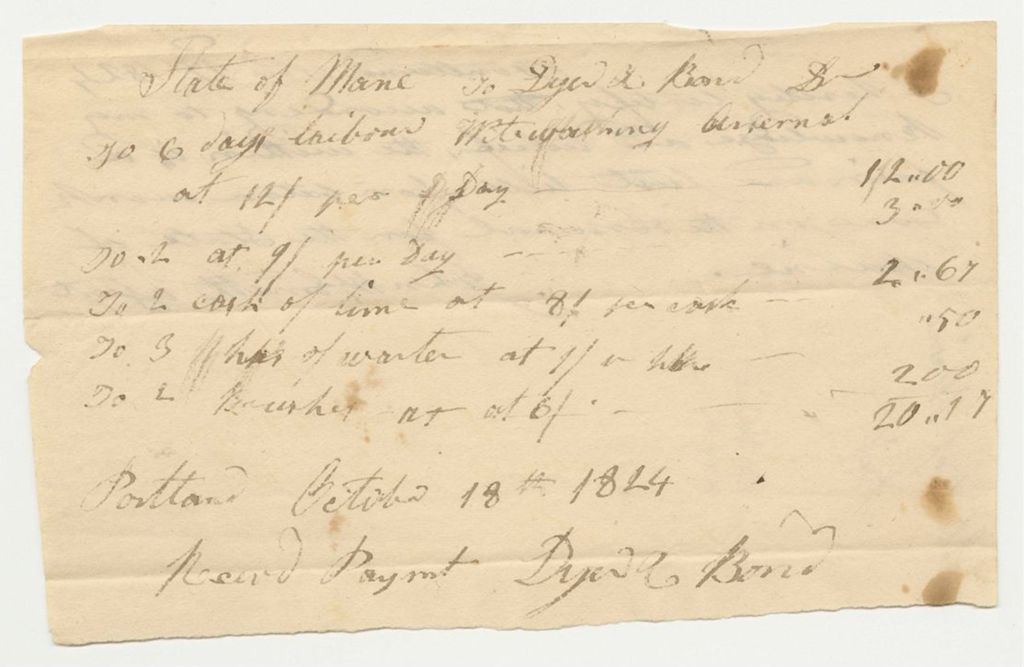 State of Mane To Dyer & Bond Dr
To 6 days laibour Witewashing Arsenal
at 12/ per Day 12"00
To 2 at 9/ per Day 3"00
To 2 cask of lime at 8/ per cask 2"67
To 3 hhs of warter at 1/ "50
To 2 Brushes at 6/ 2 00
20"17
Portland October 18th 1824
Recevd Paymt Dyer & Bond